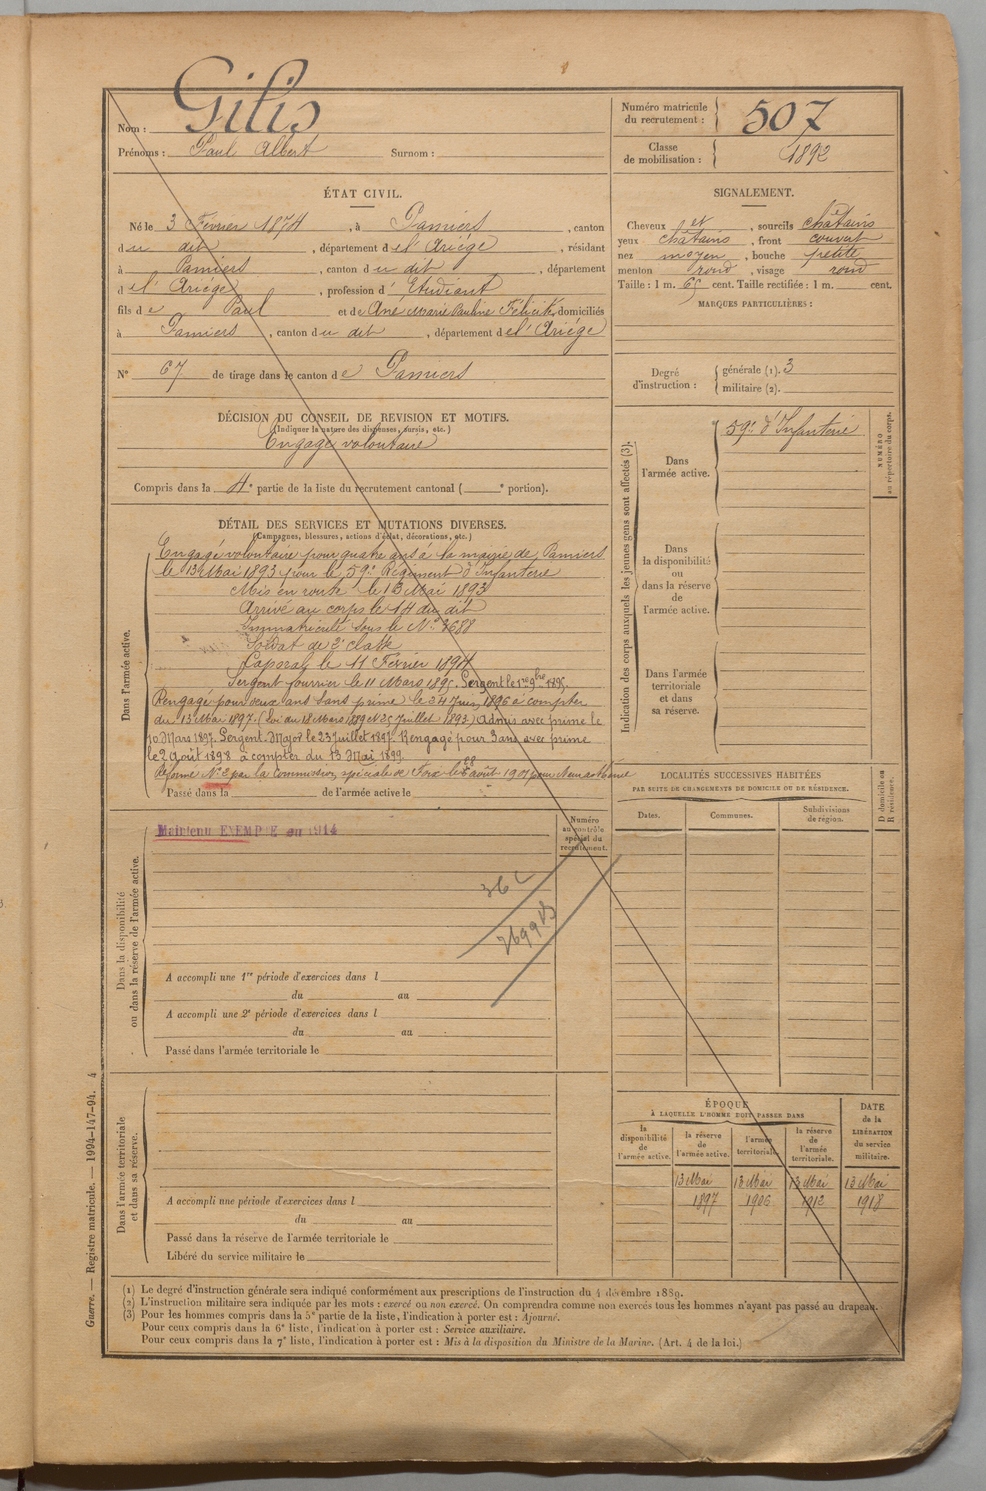 Nom : Gilis
Prénoms : Paul Albert Surnom :
Numéro matricule du recrutement : 507
Classe de mobilisation : 1892
ÉTAT CIVIL.
Né le 3 Février 1874, à Pamiers, canton
du dit, département de l'Ariège, résidant
à Pamiers, canton du dit, département
de l'Ariège, profession d'Etudiant
fils de Paul et de Ane Marie Pauline Félicité, domiciliés
à Pamiers, canton du dit, département de l'Ariège
N° 67 de tirage dans le canton de Pamiers
SIGNALEMENT.
Cheveux et, sourcils châtains
yeux châtains, front couvert
nez moyen, bouche petite
menton rond, visage rond
Taille : 1 m. 65 cent. Taille rectifiée : 1 m. cent.
MARQUES PARTICULIÈRES :
Degré d'instruction : générale (1). 3
militaire (2).
DÉCISION DU CONSEIL DE REVISION ET MOTIFS.
(Indiquer la nature des dispenses, sursis, etc.)
Engagé volontaire
Compris dans la 4e partie de la liste du recrutement cantonal ( e portion).
DÉTAIL DES SERVICES ET MUTATIONS DIVERSES.
(Campagnes, blessures, actions d'éclat, décorations, etc.)
Dans l'armée active.
Engagé volontaire pour quatre ans à la mairie de Pamiers
le 13 Mai 1893 pour le 59e Régiment d'Infanterie
Mis en route le 13 Mai 1893
Arrivé au corps le 14 du dit
Immatriculé sous le N° 3688
Soldat de 2e classe
Caporal le 11 Février 1894
Sergent fourrier le 11 Mars 1895. Sergent le 1er 9bre 1895.
Rengagé pour deux ans (sans prime) le 24 Juin 1896 à compter
du 13 Mai 1897. (Loi du 18 Mars 1889 et 25 Juillet 1893) Admis avec prime le
10 Mars 1897. Sergent-Major le 23 Juillet 1897. Rengagé pour 3 ans avec prime
le 2 Août 1898 à compter du 13 Mai 1899.
Réformé N° 2 par la Commission spéciale de Foix le 28 août 1901 pour Neurasthénie
Passé dans la de l'armée active le
Indication des corps auxquels les jeunes gens sont affectés (3).
Dans l'armée active.
59e d'Infanterie
NUMÉRO au répertoire du corps.
Dans la disponibilité ou dans la réserve de l'armée active.
Dans l'armée territoriale et dans sa réserve.
LOCALITÉS SUCCESSIVES HABITÉES
PAR SUITE DE CHANGEMENTS DE DOMICILE OU DE RÉSIDENCE.
Dates. Communes. Subdivisions de région. D domicile ou R résidence.
Dans la disponibilité ou dans la réserve de l'armée active.
Maintenu EXEMPTE en 1914
Numéro au contrôle spécial du recrutement.
A accompli une 1re période d'exercices dans l
du au
A accompli une 2e période d'exercices dans l
du au
Passé dans l'armée territoriale le
Dans l'armée territoriale et dans sa réserve.
A accompli une période d'exercices dans l
du au
Passé dans la réserve de l'armée territoriale le
Libéré du service militaire le
ÉPOQUE
À LAQUELLE L'HOMME DOIT PASSER DANS
la disponibilité de l'armée active. la réserve de l'armée active. l'armée territoriale. la réserve de l'armée territoriale. DATE de la LIBÉRATION du service militaire.
13 Mai 13 Mai 13 Mai 13 Mai
1897 1906 1912 1918
(1) Le degré d'instruction générale sera indiqué conformément aux prescriptions de l'instruction du 4 décembre 1889.
(2) L'instruction militaire sera indiquée par les mots : exercé ou non exercé. On comprendra comme non exercés tous les hommes n'ayant pas passé au drapeau.
(3) Pour les hommes compris dans la 5e partie de la liste, l'indication à porter est : Ajourné.
Pour ceux compris dans la 6e liste, l'indication à porter est : Service auxiliaire.
Pour ceux compris dans la 7e liste, l'indication à porter est : Mis à la disposition du Ministre de la Marine. (Art. 4 de la loi.)
Guerre. — Registre matricule. — 1994-147-94. 4